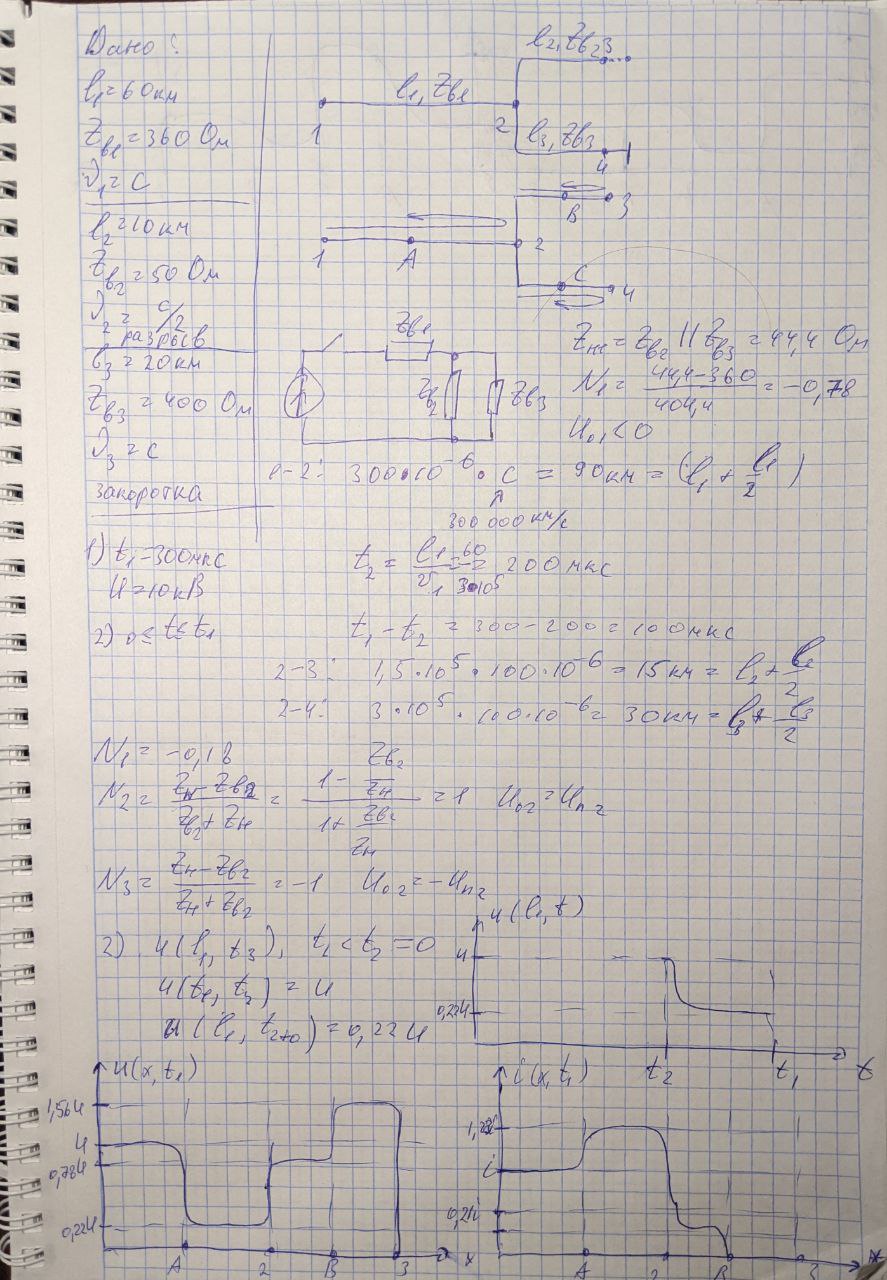 Дано:
l₁=60км
Zв₁=360 Ом
υ₁=c
l₂=10км
Zв₂=50 Ом
υ₂=c/2
разрыв
l₃=20км
Zв₃=400 Ом
υ₃=c
закоротка
l₁, Zв₁
l₂, Zв₂ 3
1
2
l₃, Zв₃
4
1
A
2
B
3
C
4
Zв₁
Zв₂
Zв₃
Zн₁ = Zв₂ || Zв₃ = 44,4 Ом
N₁ = (44,4-360)/404,4 = -0,78
U₀₁<0
1-2: 300·10⁻⁶ · c = 90км = (l₁ + l₁/2)
300 000 км/с
1) t₁=300мкс
U=10кВ
t₂ = l₁/υ₁ = 60/3·10⁵ = 200мкс
2) 0≤t≤t₁
t₁-t₂ = 300-200=100мкс
2-3: 1,5·10⁵·100·10⁻⁶ = 15км = l₂+l₂/2
2-4: 3·10⁵·100·10⁻⁶ = 30км = l₃+l₃/2
N₁ = -0,78
N₂ = (Zн-Zв₂)/(Zв₂+Zн) = (1-Zв₂/Zн)/(1+Zв₂/Zн) = 1 U₀₂=Uп₂
N₃ = (Zн-Zв₂)/(Zн+Zв₂) = -1 U₀₂=-Uп₂
2) u(l₁, t₃), t₁<t₂ =0
u(t₁, t₂) = U
u(l₁, t₂₊₀) = 0,22U
u(l₁,t)
U
0,22U
t₂
t₁
t
u(x,t₁)
1,56U
U
0,78U
0,22U
A
2
B
3
x
i(x,t₁)
i
0,21i
A
2
B
3
x